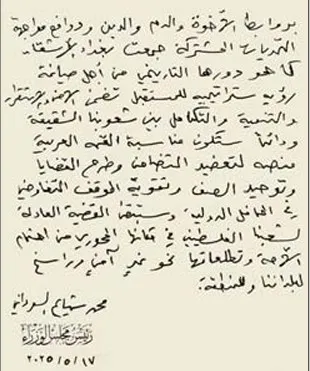 بروابط الأخوة والدم والدين ودوافع مواجهة
التحديات المشتركة جمعت بغداد الأشقاء
كما هو دورها التاريخي من أجل صياغة
رؤية ستراتيجية للمستقبل تضمن الأمن والاستقرار
والتنمية والتكامل بين شعوبنا الشقيقة
ودائماً ستكون مناسبة القمة العربية
منصة لتعضيد التضامن وطرح القضايا
وتوحيد الصف وتقوية الموقف التفاوضي
في المحافل الدولية وستبقى القضية العادلة
لشعبنا الفلسطيني في مكانها المحوري من اهتمام
الأمة وتطلعاتها نحو غدٍ آمن وراسخ
لبلداننا وللمنطقة.
محمد شياع السوداني
رئيس مجلس الوزراء
٢٠٢٥/٥/١٧